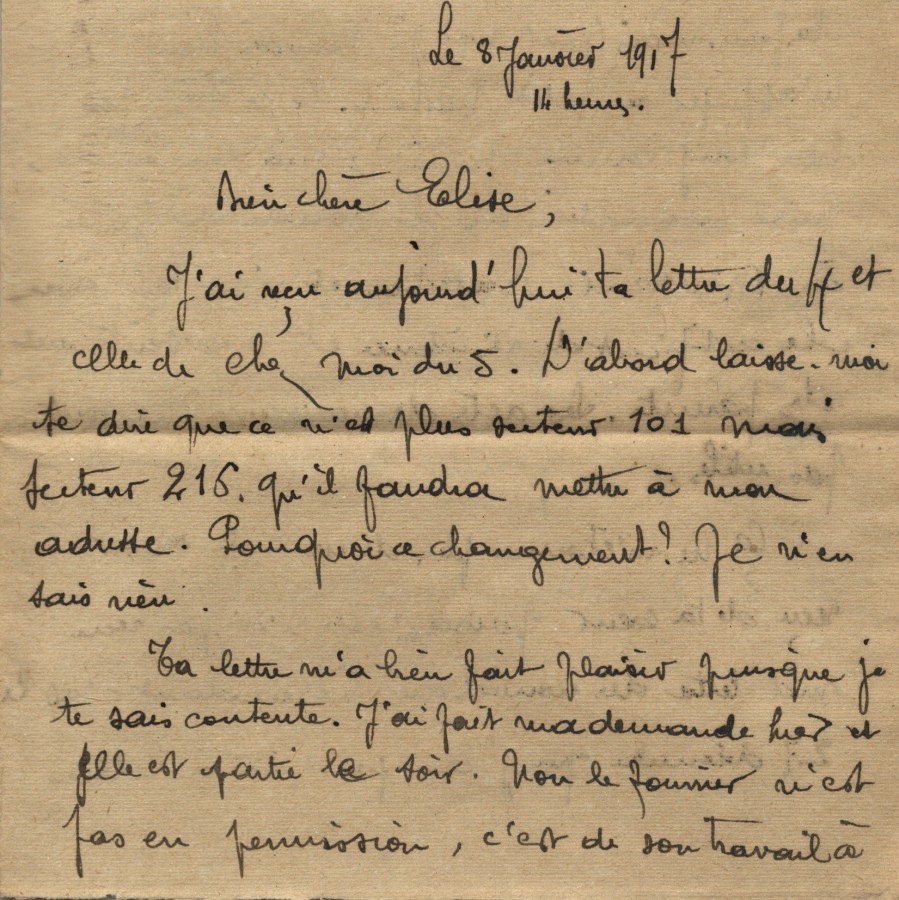 Le 8 Janvier 1917
14 heures.
Bien chère Elise,
J'ai reçu aujourd'hui ta lettre du 4 et
celle de chez moi du 5. D'abord laisse-moi
te dire que ce n'est plus secteur 101 mais
secteur 216. qu'il faudra mettre à mon
adresse. Pourquoi ce changement? Je n'en
sais rien.
Ta lettre m'a bien fait plaisir puisque je
te sais contente. J'ai fait ma demande hier et
elle est partie le soir. Non le fourrier n'est
pas en permission, c'est de son travail à